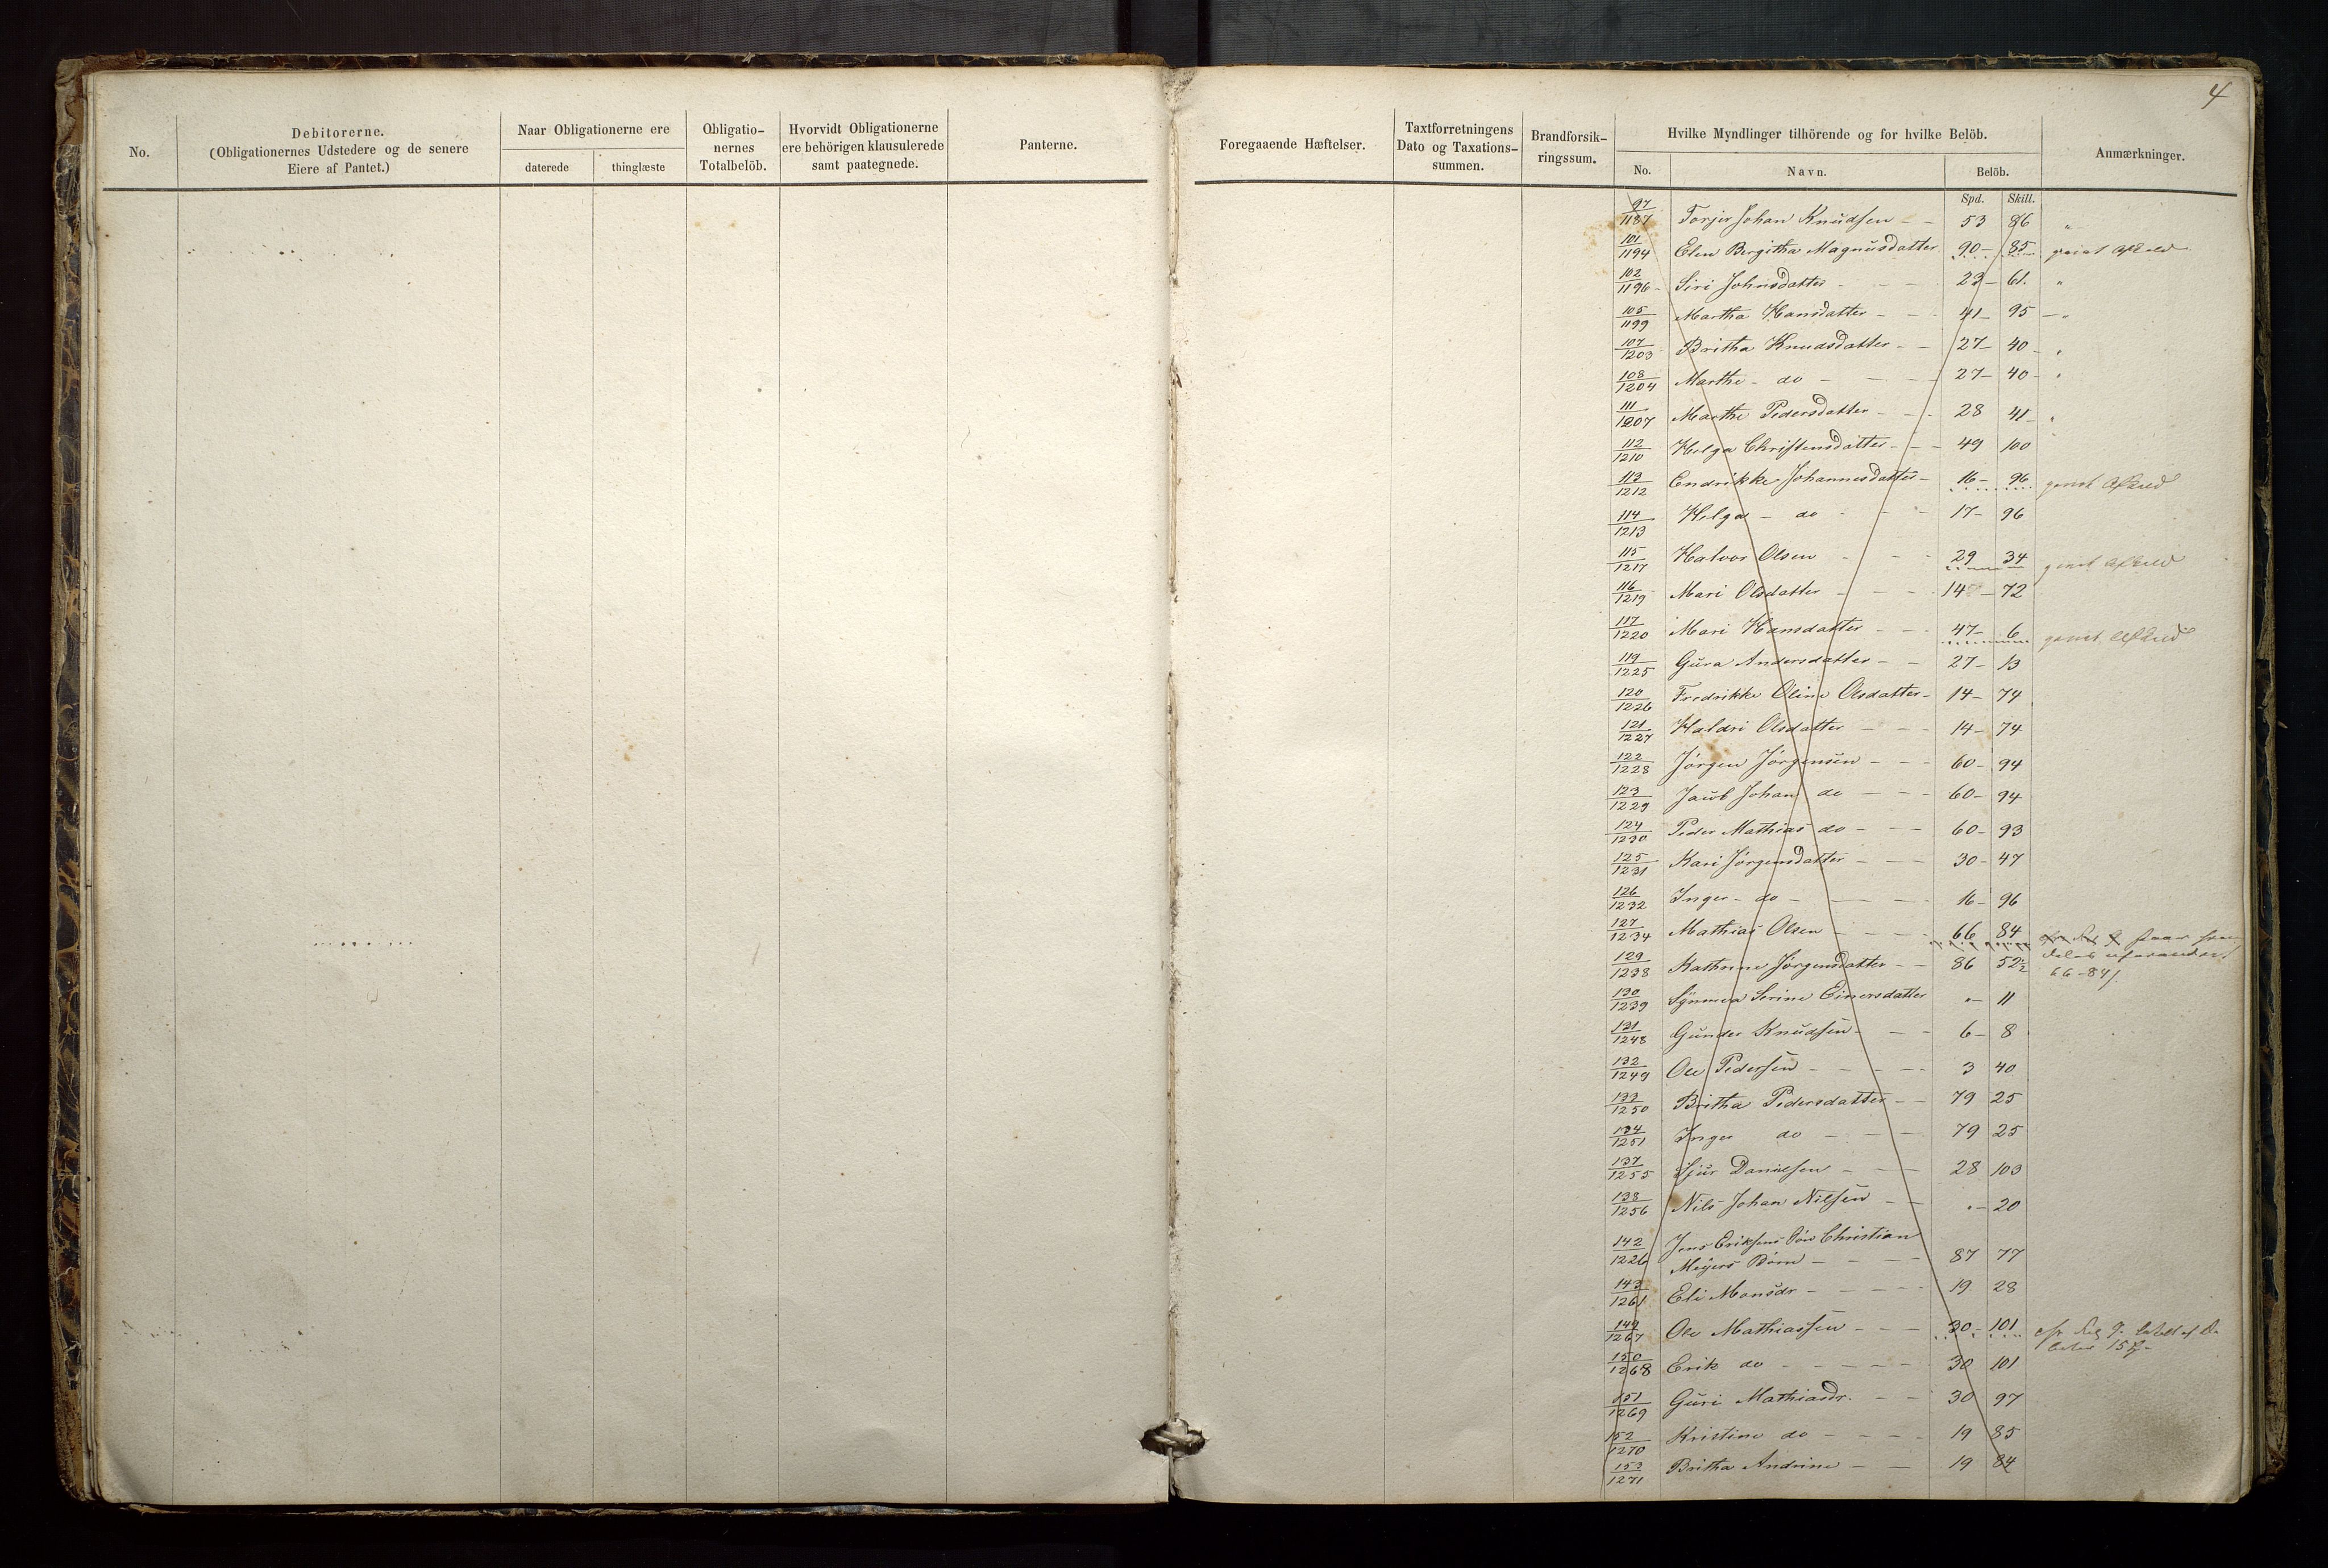 4
No.
Debitorerne.
(Obligationernes Udstedere og de senere
Eiere af Pantet.)
Naar Obligationerne ere
daterede
thinglæste
Obligatio-
nernes
Totalbelöb.
Hvorvidt Obligationerne
ere behörigen klausulerede
samt paategnede.
Panterne.
Foregaaende Hæftelser.
Taxtforretningens
Dato og Taxations-
summen.
Brandforsik-
ringssum.
Hvilke Myndlinger tilhörende og for hvilke Belöb.
No.
Navn.
Belöb.
Anmærkninger.
Spd. Skill.
97/1187 Torjer Johan Knudsen - 53 86 "
101/1194 Elen Bergitha Magnusdatter 90- 85
102/1196 - Siri Johnsdatter - 23- 61. "
105/1199 Martha Hansdatter - - 41- 95 - "
107/1203 Britha Knudsdatter - - 27- 40 - "
108/1204 Marthe - do - - - 27- 40 - "
111/1207 Marthe Pedersdatter - - 28 41- "
112/1210 Helga Christensdatter - - 49 100
113/1212 Endrikke Johannesdatter - 16- 96
114/1213 Helga - do - - - 17- 96
115/1217 Halvor Olsen - - - 29 34
116/1219 Mari Olsdatter - - - 14 - 72
117/1220 Mari Hansdatter - - - 47- 6
119/1225 Gura Andersdatter - - 27- 13
120/1226 Fredrikke Oline Olsdatter - 14- 74
121/1227 Haldri Olsdatter - - - 14- 74
122/1228 Jörgen Jörgensen - - - 60- 94
123/1229 Jacob Johan do - - - 60- 94
124/1230 Peder Mathias do - - - 60- 93
125/1231 Kari Jörgensdatter - - - 30- 47
126/1232 Inger - do - - - - 16- 96
127/1234 Mathias Olsen - - - 66 84
129/1238 Kathrine Jörgensdatter - - 86 52½
66-84/
130/1239 Synneva Serine Einersdatter "- 11
131/1248 Gunder Knudsen - - - 6- 8
132/1249 Ole Pedersen - - - - 3 40
133/1250 Britha Pedersdatter - - 79 25
134/1251 Inger do - - - 79 25
137/1255 Sjur Danielsen - - - 28 103
138/1256 Nils Johan Nilsen - - "- 20
142/1226 Jens Eriksens Christian
Meyers Börn - - - 87 77
143/1261 Eli Monsdr - - - - 19 28
149/1267 Ole Mathiassen - - - 30- 101
150/1268 Erik do - - - - - 30 101
151/1269 Guri Mathiasdr. - - 30 97
152/1270 Kristine do - - - - 19 85
153/1271 Britha Andrine - - 19 84